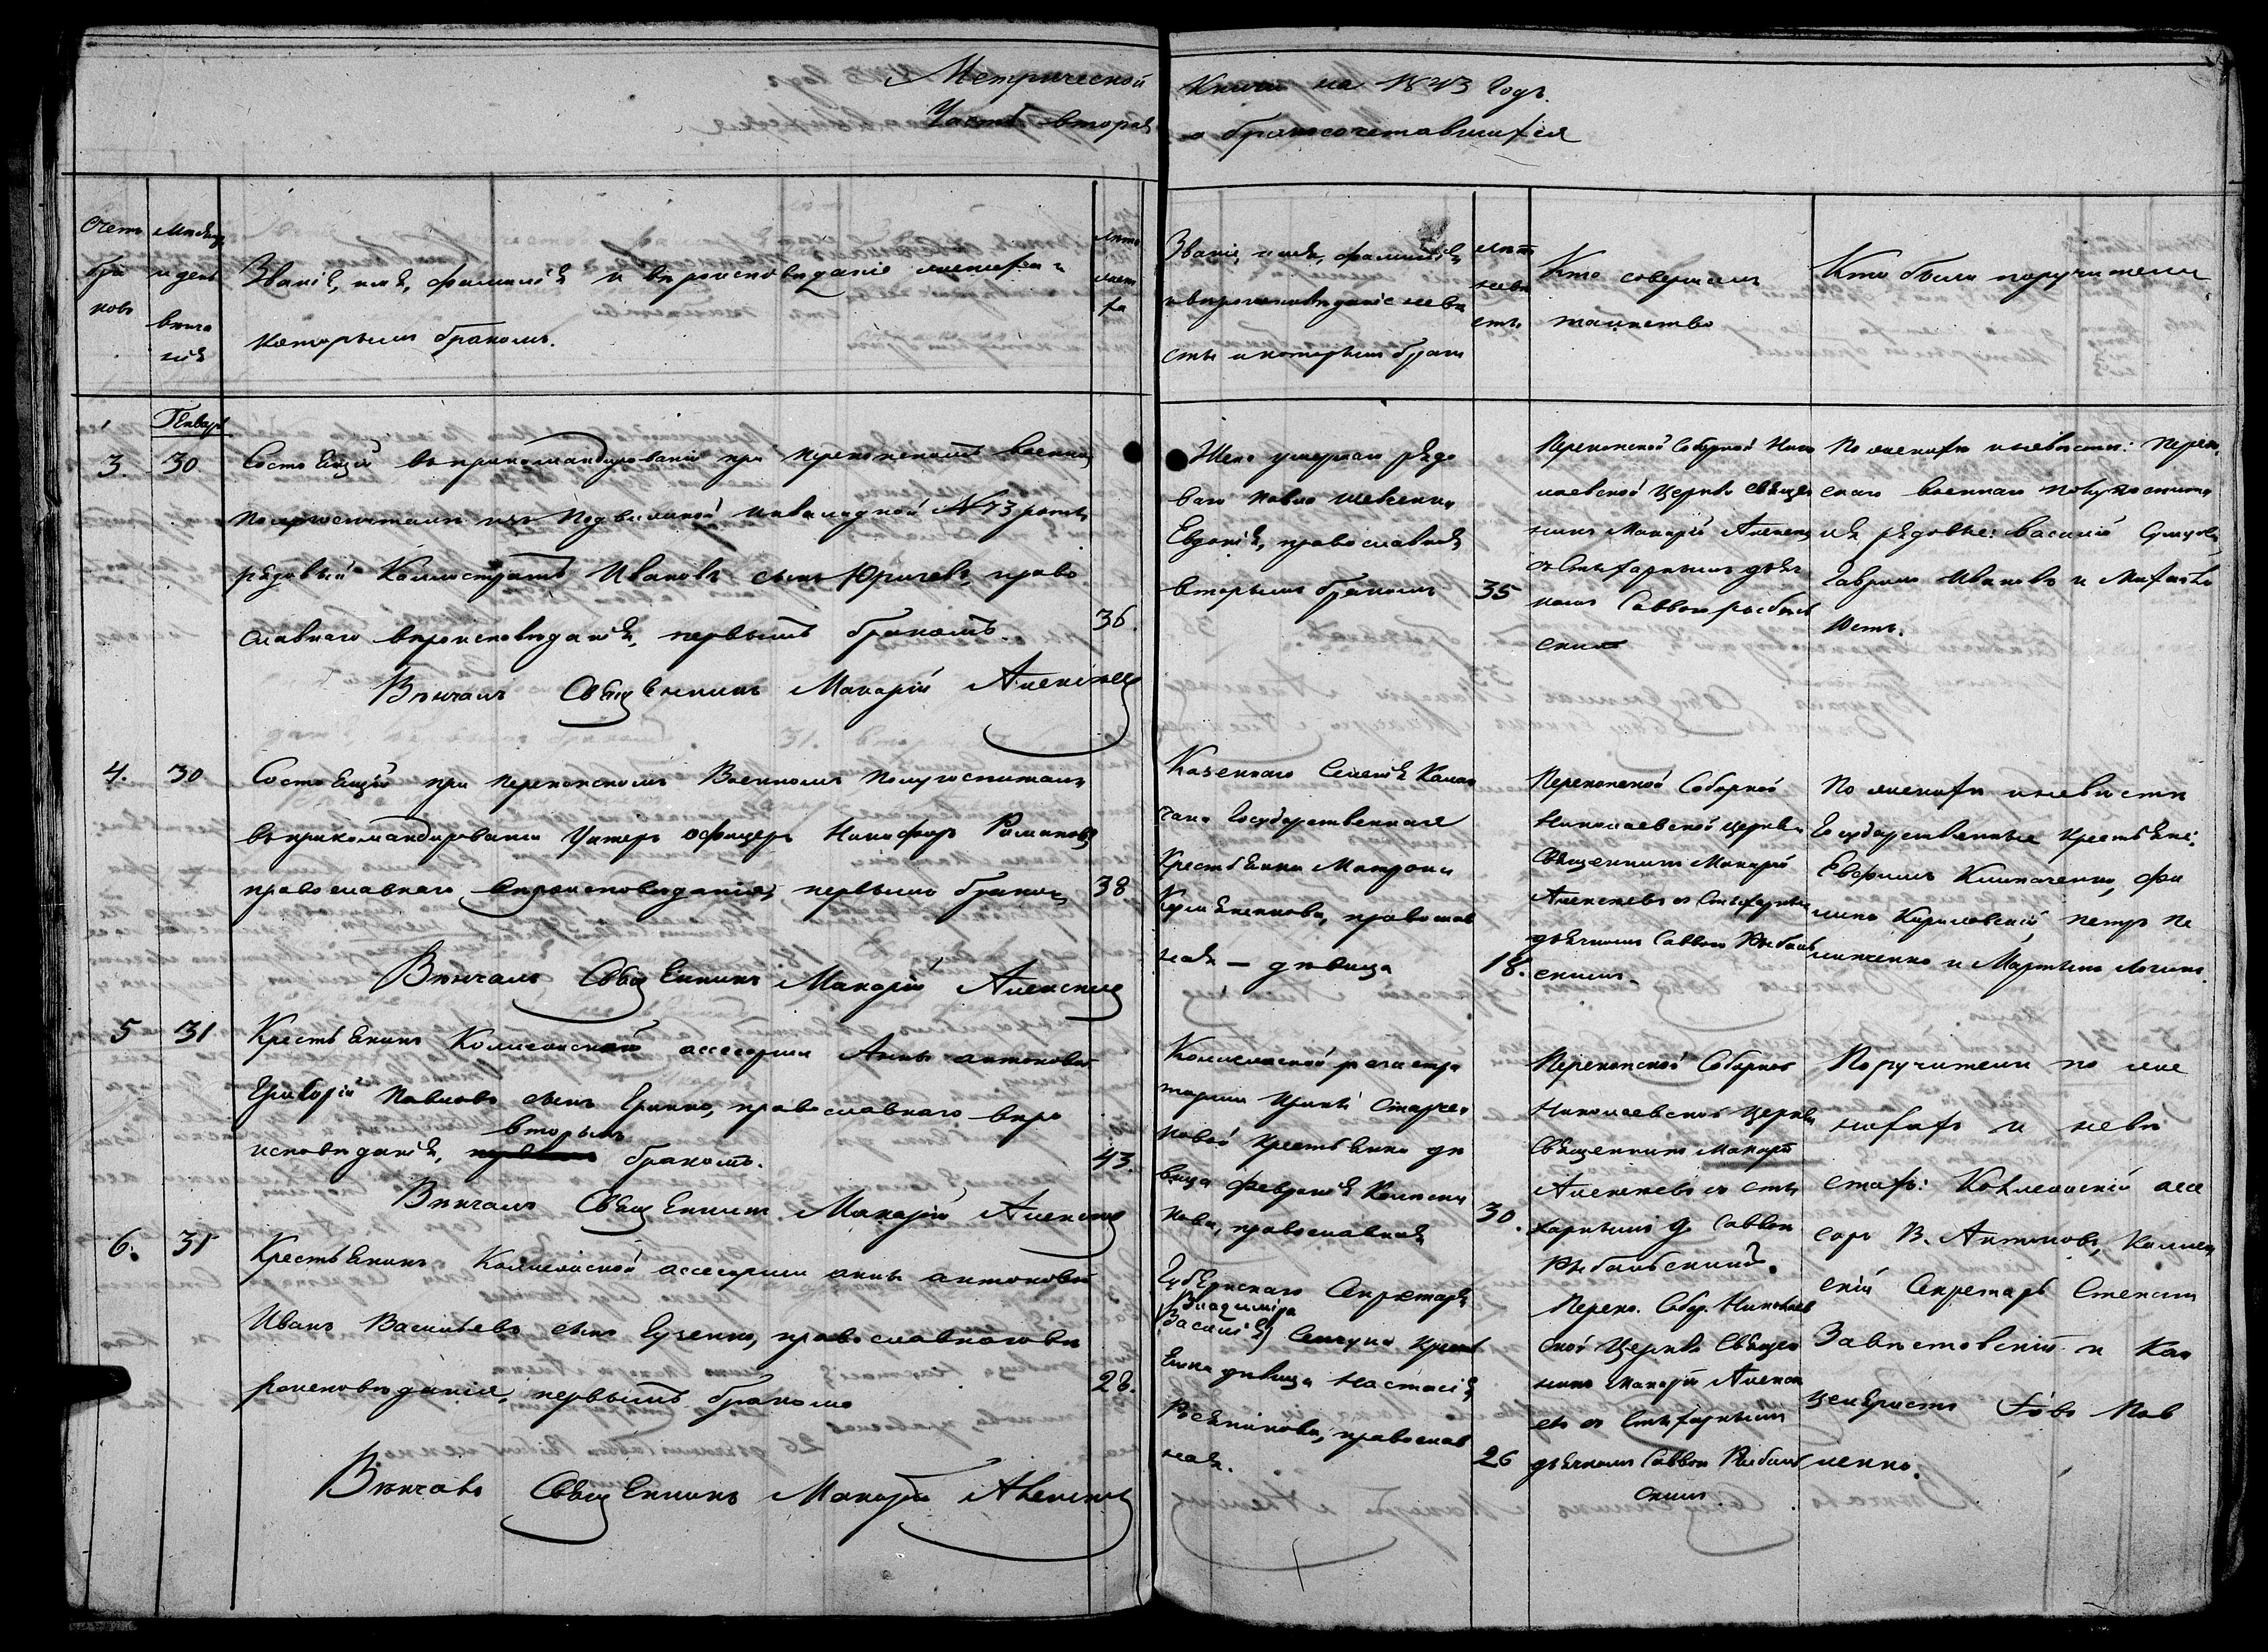 Метрической
Часть вторая
Книги на 1843 годъ.
о бракосочетавшихся
Счетъ
бра
ковъ
Месяцъ
и день
венча
нія
Званіе, имя, фамилія и вероисповеданіе жениха и
которымъ бракомъ.
лета
жени
ха
Званіе, имя, фамилія,
и вероисповеданіе неве
сты и которымъ брак
лета
неве
сты
Кто совершалъ
таинство
Кто были поручители
Январь
3. 30
Состоящій въ прикомандированіи при Перекопскомъ военномъ
полугоспитале изъ Подвижной инвалидной № 13 роты
рядовый Каллистратъ Ивановъ сынъ Юричевъ, право
славнаго вероисповеданія, первымъ бракомъ.
36.
Венчалъ Священникъ Макарій Алексеевъ
Жена умершаго рядо
ваго Павла Шевченка
Евдокія, православная
вторымъ бракомъ
35
Перекопской Соборной Нико
лаевской Церкви Священ
никъ Макарій Алексеев
съ Стихарнымъ дьяч
комъ Саввою Рыбаль
скимъ
По жениху и невесте: Переко
скаго военнаго полугоспитал
ля рядовые: Василій
Гавріилъ Ивановъ и
4. 30
Состоящій при Перекопскомъ Военномъ Полугоспитале
въ прикомандированіи Унтеръ офицеръ Никифоръ Романовъ
православнаго вероисповеданія, первымъ бракомъ
38.
Венчалъ Священникъ Макарій Алексеевъ
Казеннаго Селенія Калан
чака Государственная
Крестьянка Матрона
православ
ная — девица
18.
Перекопской Соборной
Николаевской Церкви
Священникъ Макарій
Алексеевъ съ Стихарнымъ
дьячкомъ Саввою Рыбаль
скимъ.
По жениху и невесте
Государственные крестьяне:
Евфимъ Климаченко, Фи
липъ Кириловскій, Петръ Пе
и Мартынъ
5 31
Крестьянинъ Колежской ассесорши Анны Антоновой
Григорій Павловъ сынъ Гринко, православнаго веро
исповеданія, вторымъ бракомъ.
43.
Венчалъ Священникъ Макарій Алексеевъ
Колежской регистра
торши Ирины Старчен
ковой крестьянка де
вица Февронія
кова, православная
30.
Перекопской Соборной
Николаевской Церкви
Священникъ Макарій
Алексеевъ съ сти
харнымъ д. Саввою
Рыбальскимъ.
Поручители по же
нихахъ и неве
стахъ: Коллежскій асе
соръ В. Антоновъ, Коллеж
скій Секретарь Степанъ
Завистовскій и Кан
целяристъ Іовъ Пав
ленко.
6. 31
Крестьянинъ Коллежской ассесорши Анны Антоновой
Иванъ Васильевъ сынъ Гузенко, православнаго ве
роисповеданія, первымъ бракомъ
28.
Венчалъ Священникъ Макарій Алексеевъ
Губернскаго Секретаря
Владиміра
(Василія) крест
янка девица Настасія
православ
ная.
26
Переко. Собор. Николаев
ской Церкви Священ
никъ Макарій Алексе
евъ съ Стихарнымъ
дьячкомъ Саввою Рыбаль
скимъ.